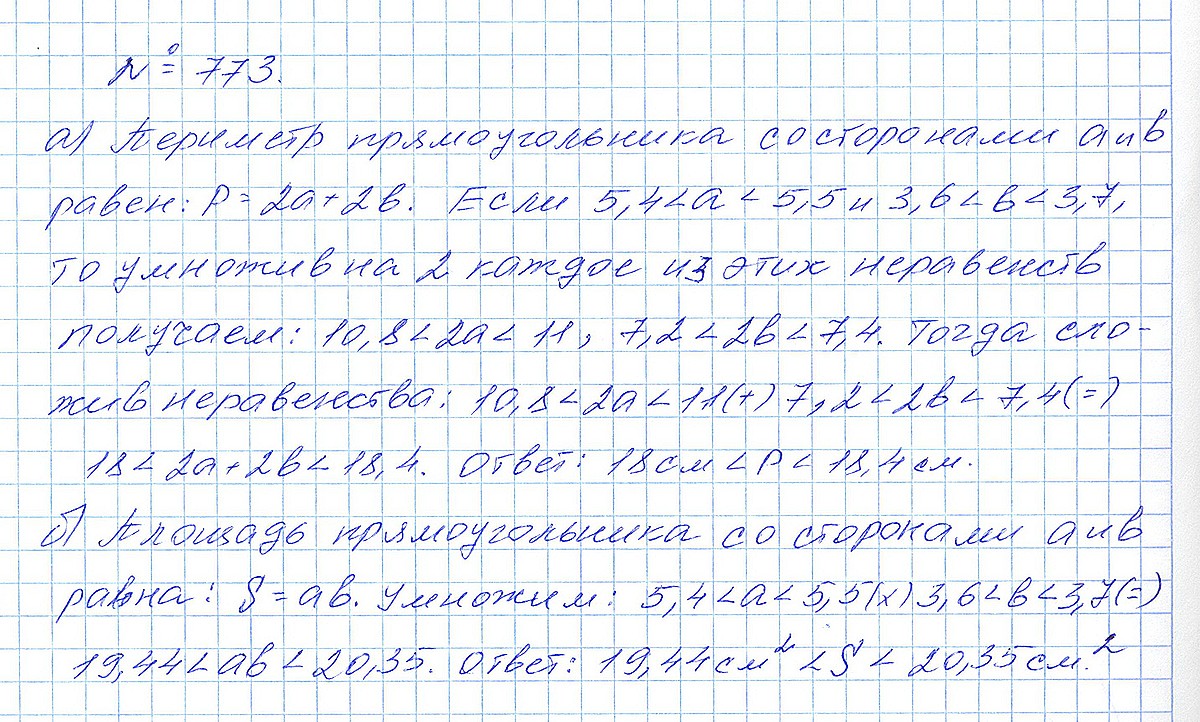 № 773.
а) Периметр прямоугольника со сторонами а и в
равен: P = 2а + 2в. Если 5,4 < а < 5,5 и 3,6 < в < 3,7,
то умножив на 2 каждое из этих неравенств
получаем: 10,8 < 2а < 11, 7,2 < 2в < 7,4. Тогда сло-
жив неравенства: 10,8 < 2а < 11 (+) 7,2 < 2в < 7,4 (=)
18 < 2а + 2в < 18,4. Ответ: 18 см < P < 18,4 см.
б) Площадь прямоугольника со сторонами а и в
равна: S = ав. Умножим: 5,4 < а < 5,5 (х) 3,6 < в < 3,7 (=)
19,44 < ав < 20,35. Ответ: 19,44 см² < S < 20,35 см.²